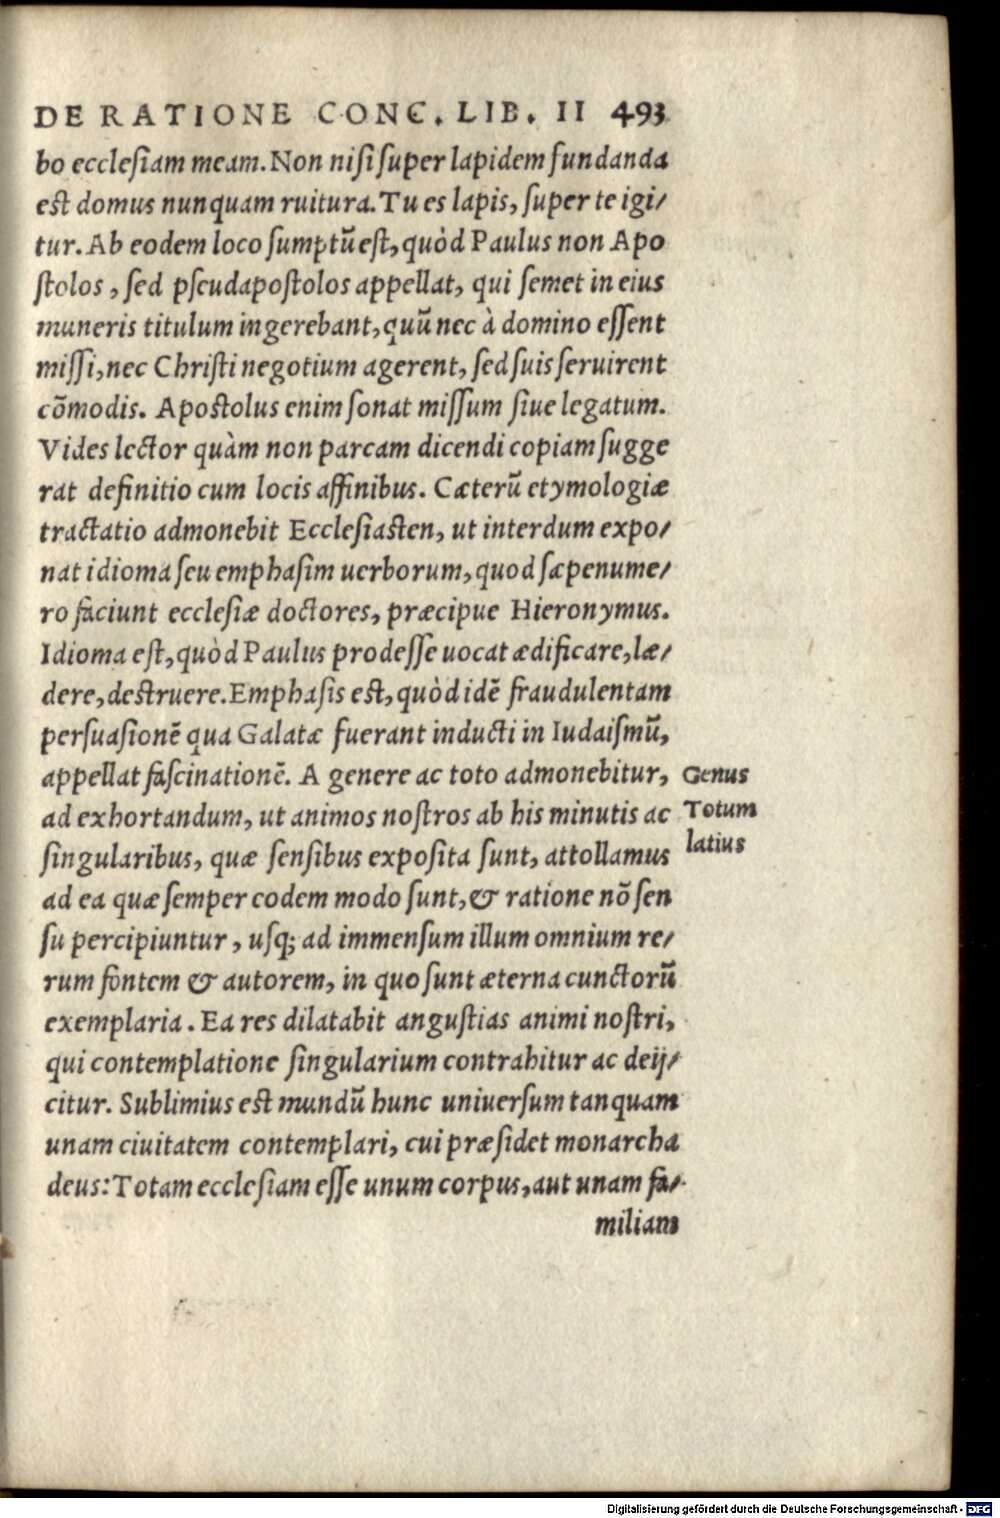 DE RATIONE CONC. LIB. II 493
bo ecclesiam meam. Non nisi super lapidem fundanda
est domus nunquam ruitura. Tu es lapis, super te igi/
tur. Ab eodem loco sumptũ est, quòd Paulus non Apo
stolos, sed pseudapostolos appellat, qui semet in eius
muneris titulum ingerebant, quũ nec à domino essent
missi, nec Christi negotium agerent, sed suis seruirent
cõmodis. Apostolus enim sonat missum siue legatum.
Vides lector quàm non parcam dicendi copiam sugge
rat definitio cum locis affinibus. Cæterũ etymologiæ
tractatio admonebit Ecclesiasten, ut interdum expo/
nat idioma seu emphasim uerborum, quod sæpenume/
ro faciunt ecclesiæ doctores, præcipue Hieronymus.
Idioma est, quòd Paulus prodesse uocat ædificare, læ/
dere, destruere. Emphasis est, quòd idẽ fraudulentam
persuasionẽ qua Galatæ fuerant inducti in Iudaismũ,
appellat fascinationẽ. A genere ac toto admonebitur,
Genus
ad exhortandum, ut animos nostros ab his minutis ac
Totum
singularibus, quæ sensibus exposita sunt, attollamus
latius
ad ea quæ semper eodem modo sunt, & ratione nõ sen
su percipiuntur, usq; ad immensum illum omnium re/
rum fontem & autorem, in quo sunt æterna cunctorũ
exemplaria. Ea res dilatabit angustias animi nostri,
qui contemplatione singularium contrahitur ac deij/
citur. Sublimius est mundũ hunc uniuersum tanquam
unam ciuitatem contemplari, cui præsidet monarcha
deus: Totam ecclesiam esse unum corpus, aut unam fa/
miliam
Digitalisierung gefördert durch die Deutsche Forschungsgemeinschaft - DFG